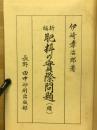 伊崎孝治郎著
新編
肥料の實際問題
(續)
長野 田中印刷出版部